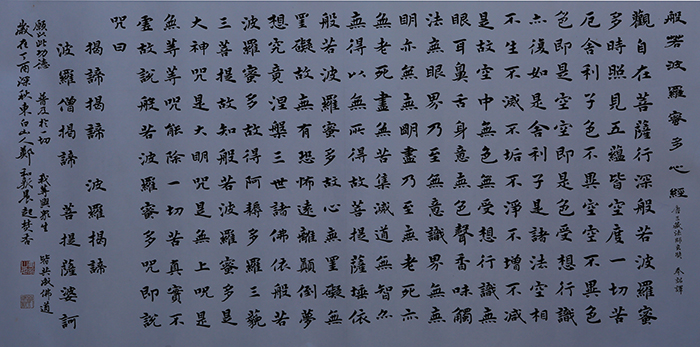 般若波羅蜜多心經 唐三藏法師玄奘 奉詔譯
觀自在菩薩行深般若波羅蜜
多時照見五蘊皆空度一切苦
厄舍利子色不異空空不異色
色即是空空即是色受想行識
亦復如是舍利子是諸法空相
不生不滅不垢不淨不增不減
是故空中無色無受想行識無
眼耳鼻舌身意無色聲香味觸
法無眼界乃至無意識界無無
明亦無無明盡乃至無老死亦
無老死盡無苦集滅道無智亦
無得以無所得故菩提薩埵依
般若波羅蜜多故心無罣礙無
罣礙故無有恐怖遠離顛倒夢
想究竟涅槃三世諸佛依般若
波羅蜜多故得阿耨多羅三藐
三菩提故知般若波羅蜜多是
大神咒是大明咒是無上咒是
無等等咒能除一切苦真實不
虛故說般若波羅蜜多咒即說
咒曰
揭諦揭諦 波羅揭諦
波羅僧揭諦 菩提薩婆訶
願以此功德 普及於一切 我等與眾生 皆共成佛道
歲在丁酉深秋東白山人鄭 晨起焚香